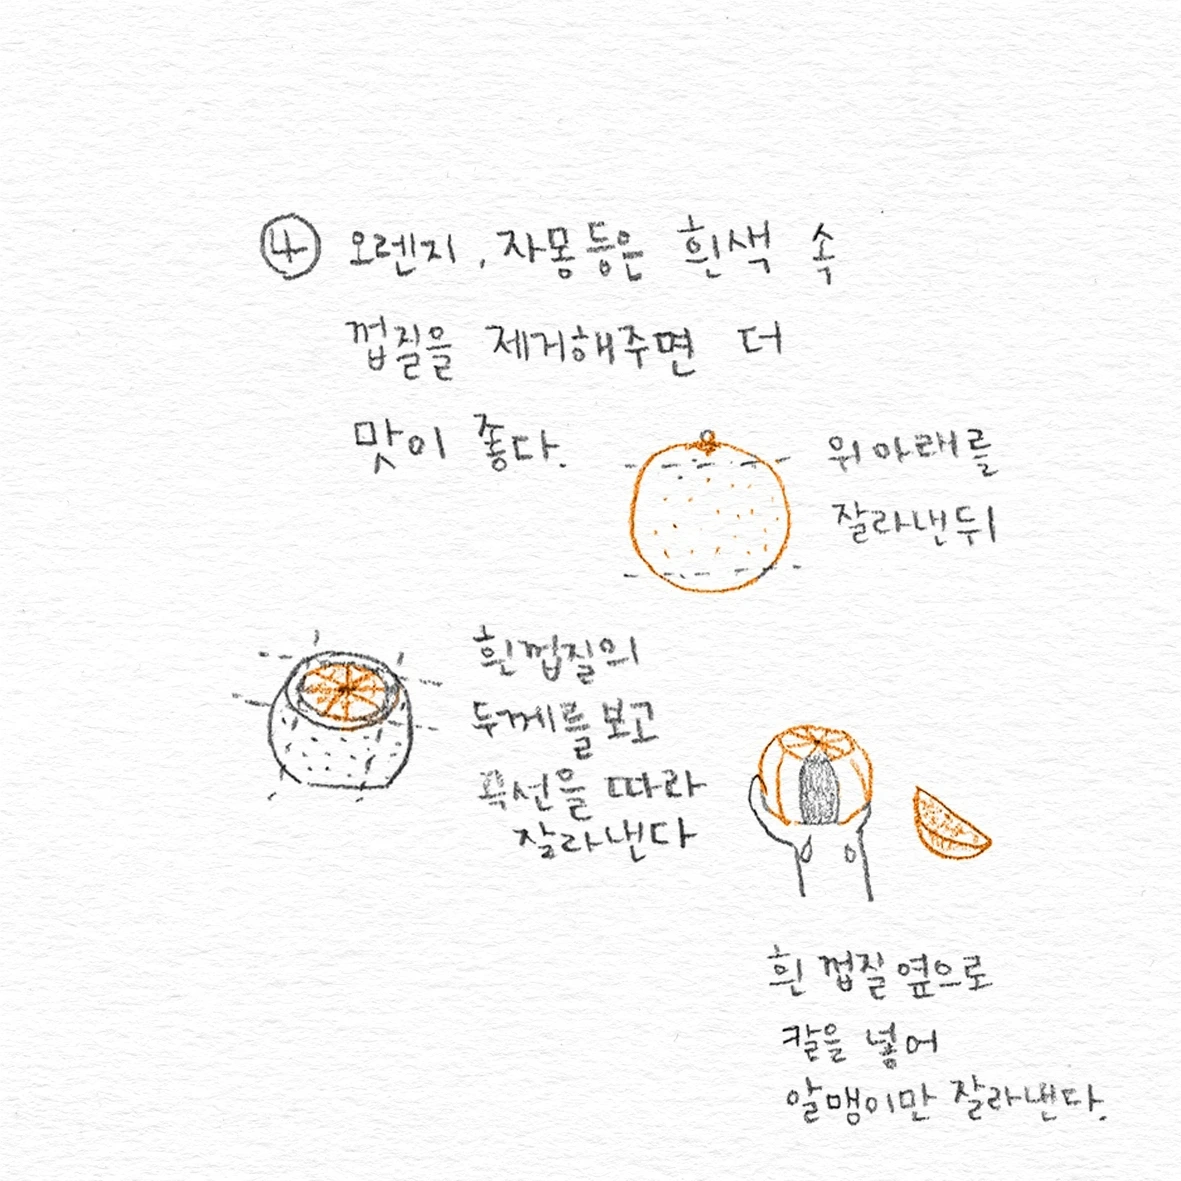 ④ 오렌지, 자몽 등은 흰색 속
껍질을 제거해주면 더
맛이 좋다.
위아래를
잘라낸뒤
흰껍질의
두께를 보고
곡선을 따라
잘라낸다
흰 껍질 옆으로
칼을 넣어
알맹이만 잘라낸다.